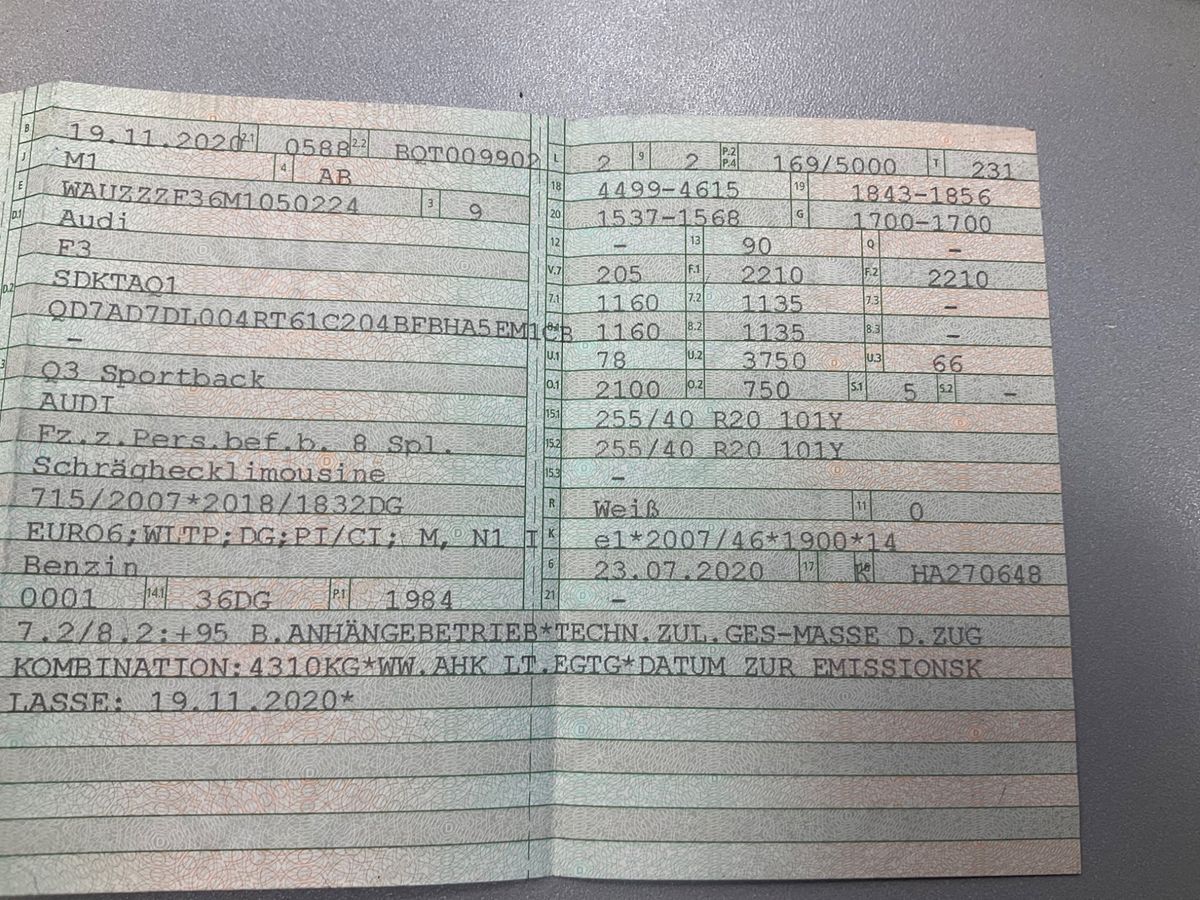 B 19.11.2020 2.1 0588 2.2 BQT009902
J M1 4 AB
E WAUZZZF36M1050224 3 9
D.1 Audi
F3
D.2 SDKTAQ1
QD7AD7DL004RT61C204BFBHA5EM1CB
–
3 Q3 Sportback
AUDI
Fz.z.Pers.bef.b. 8 Spl.
Schräghecklimousine
715/2007*2018/1832DG
EURO6;WLTP;DG;PI/CI; M, N1 I
Benzin
0001 14.1 36DG P.1 1984
L 2 9 2 P.2 P.4 169/5000 T 231
18 4499-4615 19 1843-1856
20 1537-1568 G 1700-1700
12 – 13 90 Q –
V.7 205 F.1 2210 F.2 2210
7.1 1160 7.2 1135 7.3 –
8.1 1160 8.2 1135 8.3 –
U.1 78 U.2 3750 U.3 66
O.1 2100 O.2 750 S.1 5 S.2 –
15.1 255/40 R20 101Y
15.2 255/40 R20 101Y
15.3 –
R Weiß 11 0
K e1*2007/46*1900*14
6 23.07.2020 17 K 16 HA270648
21 –
7.2/8.2:+95 B.ANHÄNGEBETRIEB*TECHN.ZUL.GES-MASSE D.ZUG
KOMBINATION:4310KG*WW.AHK LT.EGTG*DATUM ZUR EMISSIONSK
LASSE: 19.11.2020*